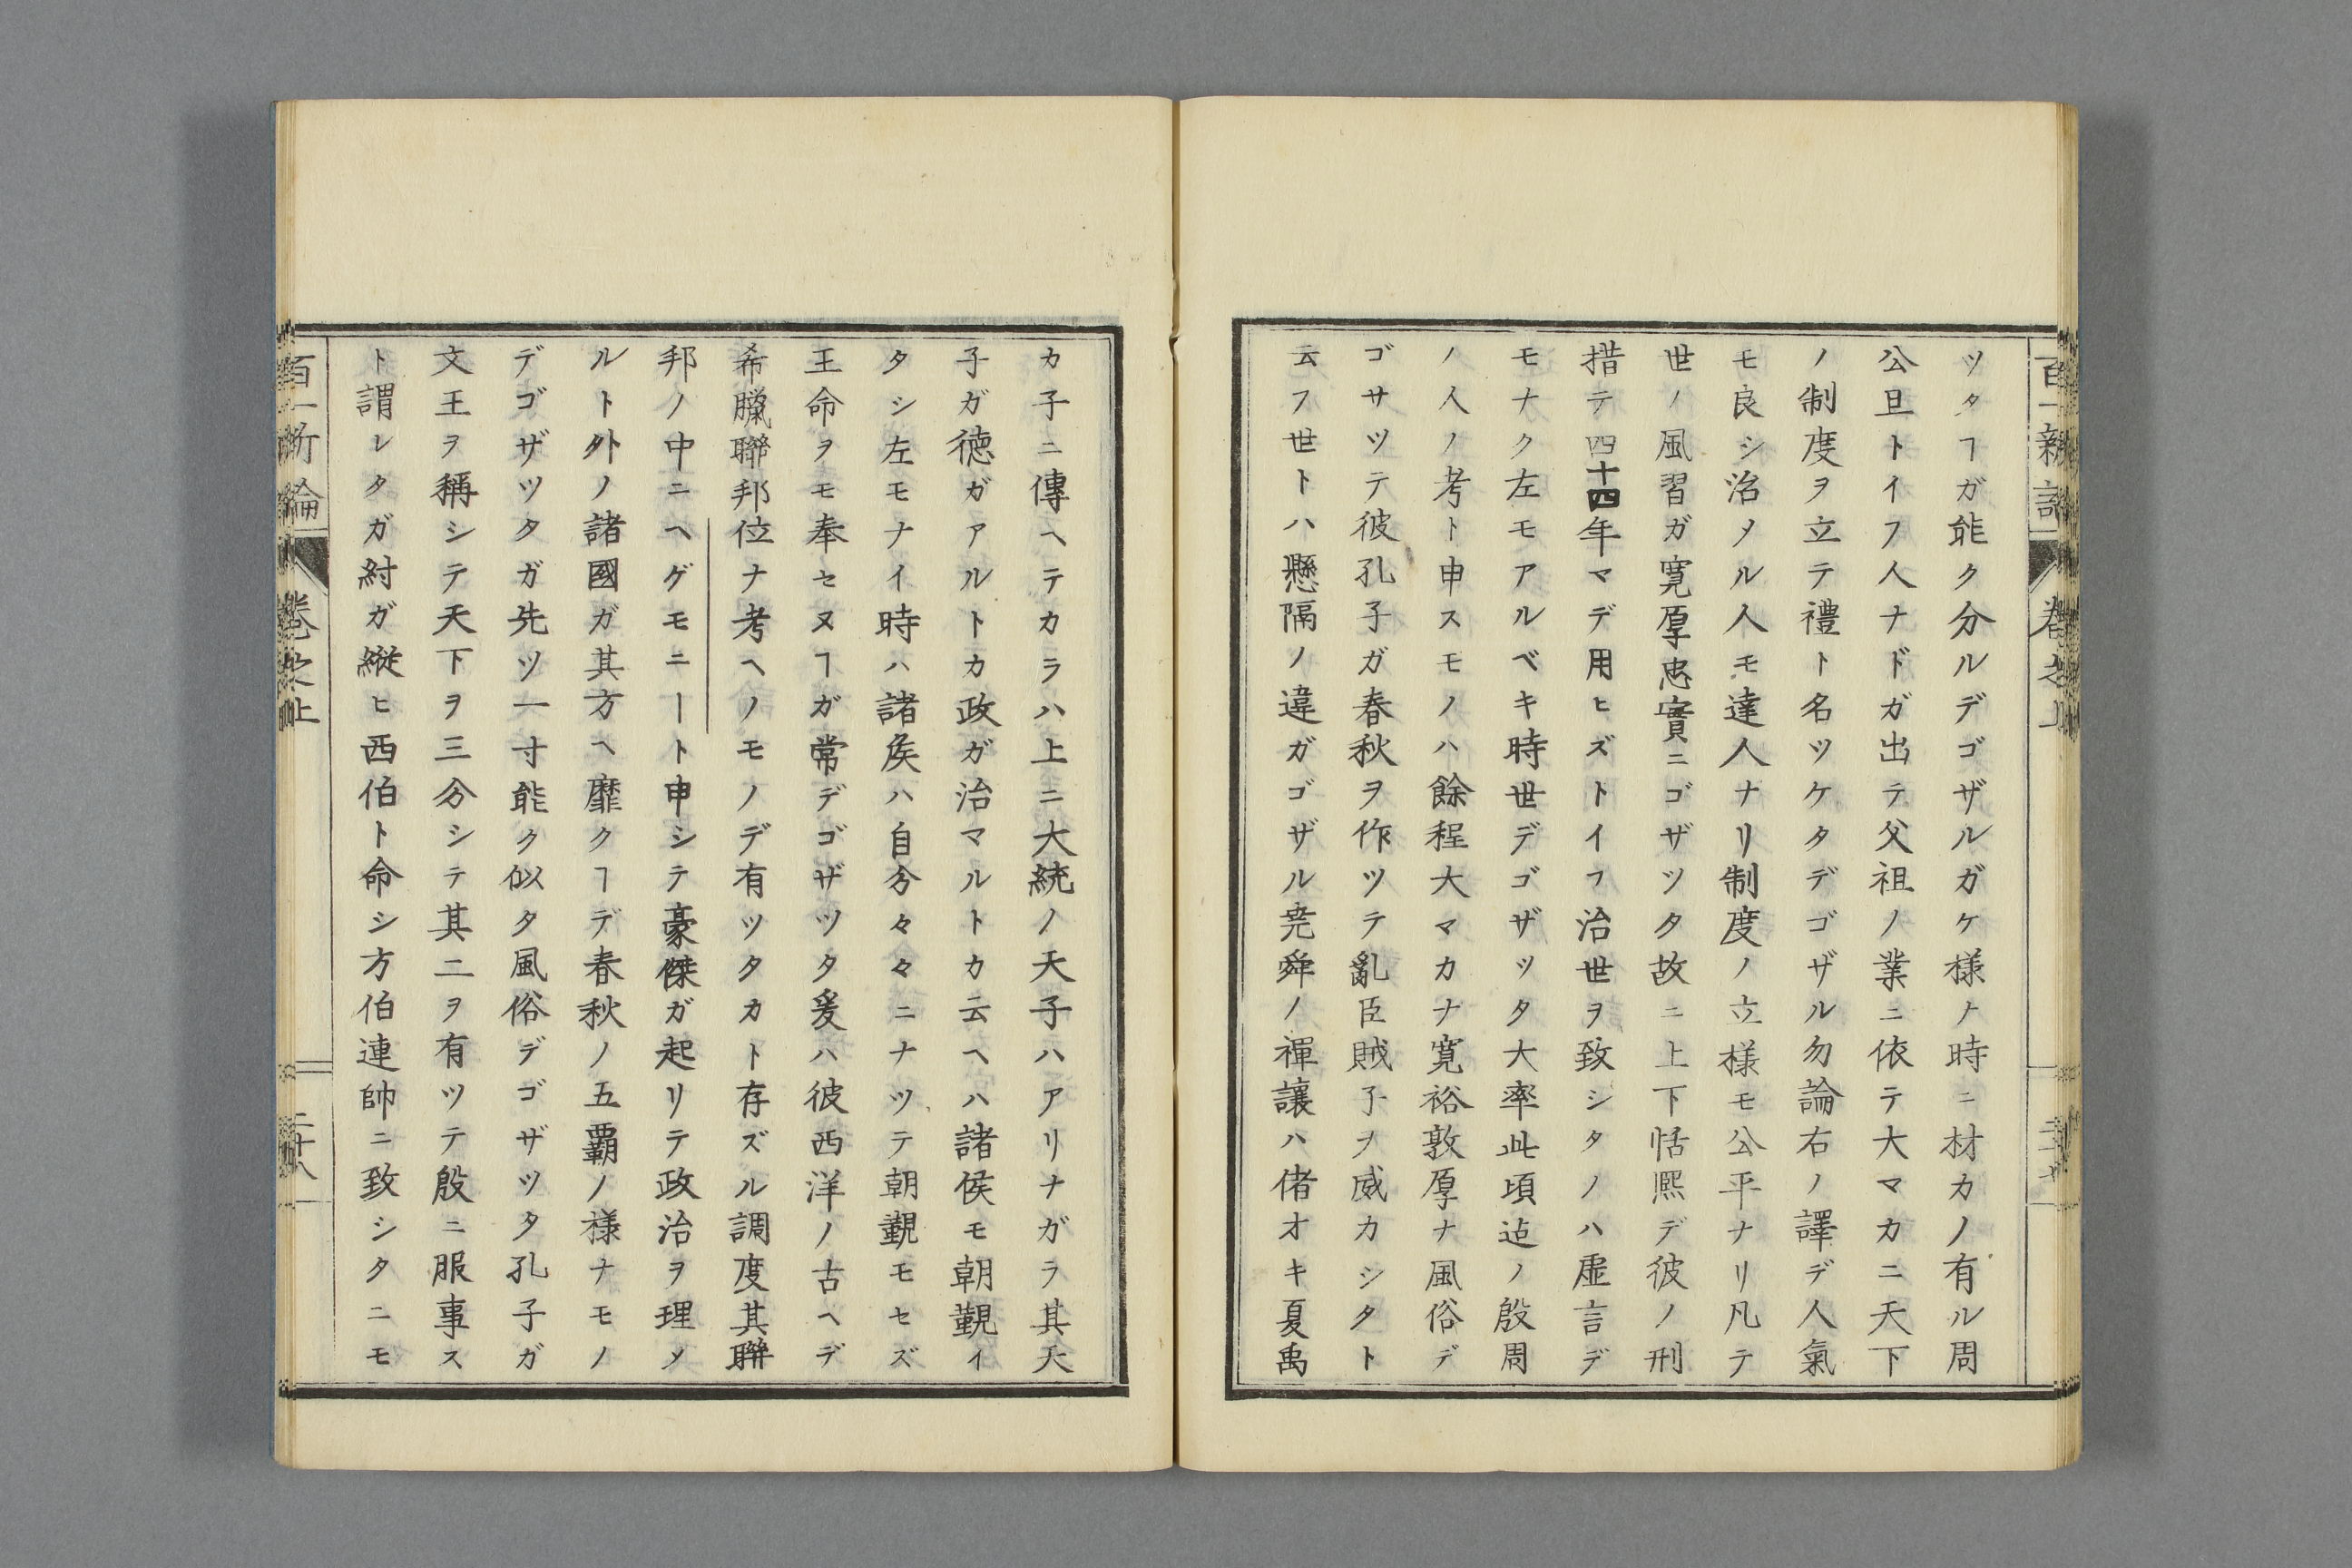 ツタヿガ能ク分ルデゴザルガケ様ナ時ニ材カノ有ル周
公旦トイフ人ナドガ出テ父祖ノ業ニ依テ大マカニ天下
ノ制度ヲ立テ禮ト名ツケタデゴザル勿論右ノ譯デ人氣
モ良シ治メル人モ達人ナリ制度ノ立様モ公平ナリ凡テ
世ノ風習ガ寛厚忠實ニゴザツタ故ニ上下恬熈デ彼ノ刑
措テ四十四年マデ用ヒズトイフ治世ヲ致シタノハ虚言デ
モナク左モアルベキ時世デゴザツタ大率此頃迠ノ殷周
ノ人ノ考ト申スモノハ餘程大マカナ寛裕敦厚ナ風俗デ
ゴサツテ彼孔子ガ春秋ヲ作ツテ亂臣賊子ヲ威カシタト
云フ世トハ懸隔ノ違ガゴザル尭舜ノ禪讓ハ偖オキ夏禹
カ子ニ傳ヘテカラハ上ニ大統ノ天子ハアリナガラ其天
子ガ徳ガアルトカ政ガ治マルトカ云ヘハ諸侯モ朝覲イ
タシ左モナイ時ハ諸矦ハ自分々々ニナツテ朝覲モセズ
王命ヲモ奉セヌヿガ常デゴザツタ爰ハ彼西洋ノ古ヘデ
希臘聯邦位ナ考ヘノモノデ有ツタカト存ズル調度其聯
邦ノ中ニヘゲモニートト申シテ豪傑ガ起リテ政治ヲ理メ
ルト外ノ諸國ガ其方ヘ靡クヿデ春秋ノ五覇ノ様ナモノ
デゴザツタガ先ツ一寸能ク似タ風俗デゴザツタ孔子ガ
文王ヲ稱シテ天下ヲ三分シテ其二ヲ有ツテ殷ニ服事ス
ト謂レタガ紂ガ縱ヒ西伯ト命シ方伯連帥ニ致シタニモ
百一新論 卷之上